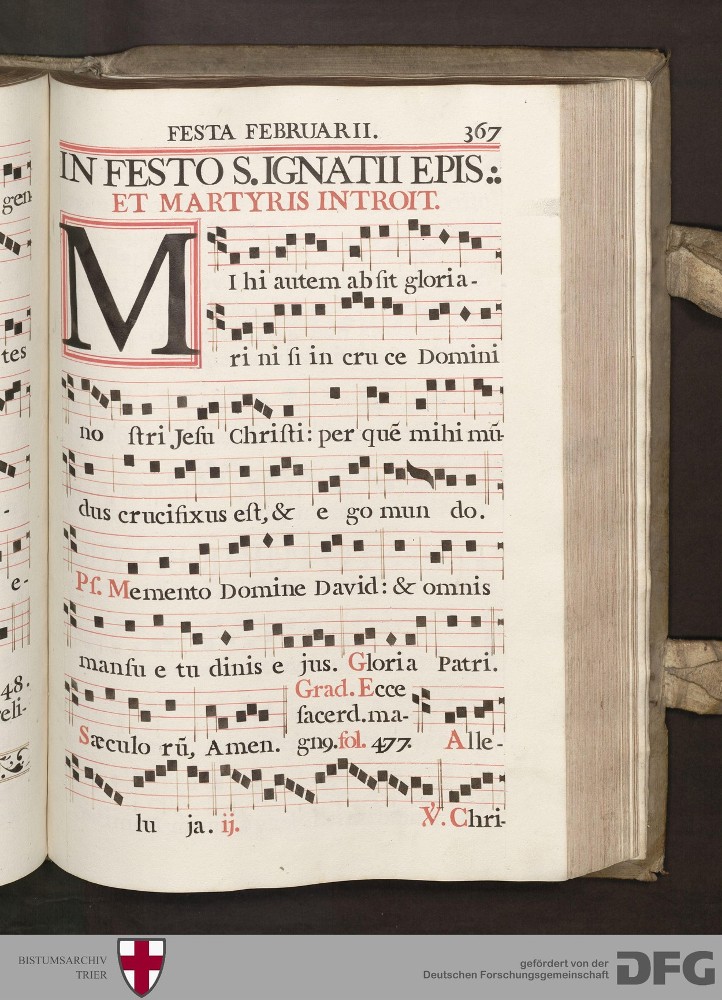 FESTA FEBRUARII. 367
IN FESTO S. IGNATII EPIS:.
ET MARTYRIS INTROIT.
MI hi autem ab ſit gloria-
ri ni ſi in cru ce Domini
no ſtri Jeſu Chriſti: per quē mihi mū-
dus crucifixus eſt, & e go mun do.
Pſ. Memento Domine David: & omnis
manſu e tu dinis e jus. Gloria Patri.
Sæculo rū, Amen. Grad. Ecce
ſacerd. ma-
gn9. fol. 477. Alle-
lu ja. ij. ℣. Chri-
gen
tes
-
e-
48.
eli-
BISTUMSARCHIV
TRIER
gefördert von der
Deutschen Forschungsgemeinschaft
DFG